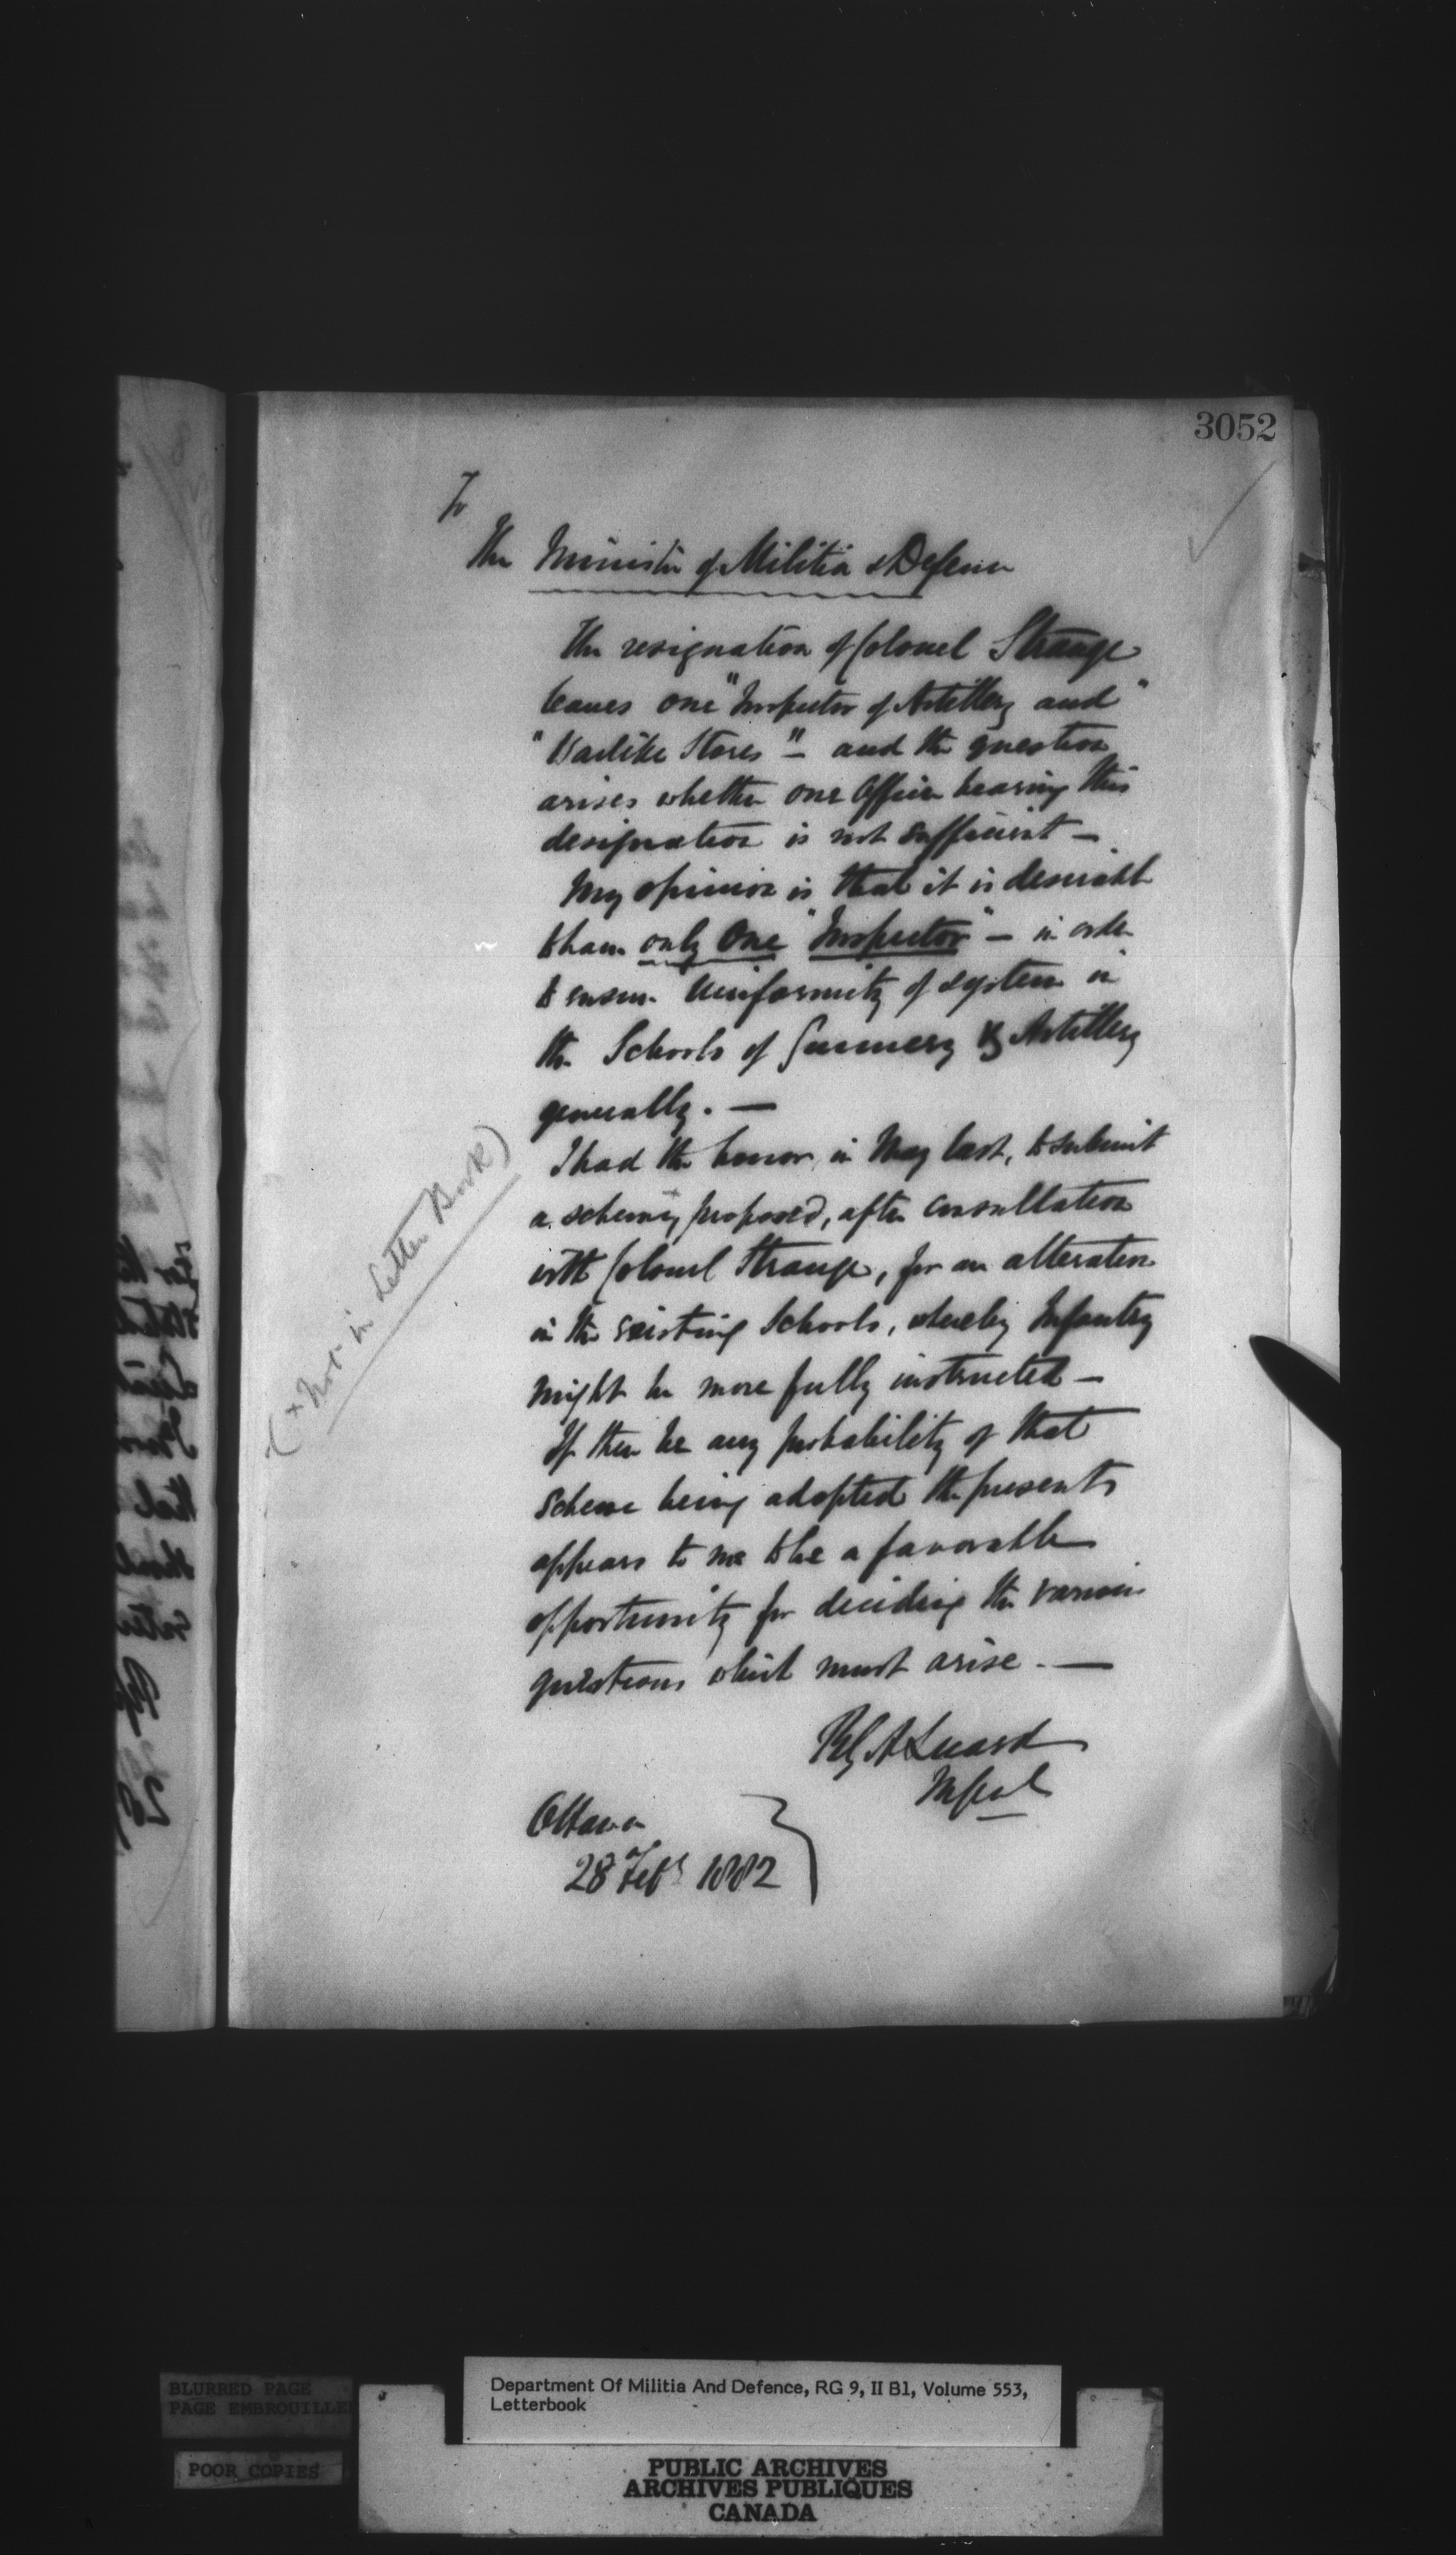 3052
To
The Minister of Militia & Defence
The resignation of Colonel Strange
leaves one "Inspector of Artillery and"
"Warlike Stores" — and the question
arises whether one Officer bearing this
designation is not sufficient —
My opinion is that it is desirable
to have only One "Inspector" — in order
to ensure Uniformity of system in
the Schools of Gunnery & Artillery
generally. —
I had the honor, in May last, to submit
a scheme, + proposed, after consultation
with Colonel Strange, for an alteration
in the existing Schools, whereby Infantry
might be more fully instructed —
If there be any probability of that
Scheme being adopted the present
appears to me to be a favorable
opportunity for deciding the various
questions which must arise. —
(+ Not in Letter Book)
R G A Luard
M Genl
Ottawa
28 Feby 1882
BLURRED PAGE
PAGE EMBROUILLEE
POOR COPIES
Department Of Militia And Defence, RG 9, II B1, Volume 553,
Letterbook
PUBLIC ARCHIVES
ARCHIVES PUBLIQUES
CANADA